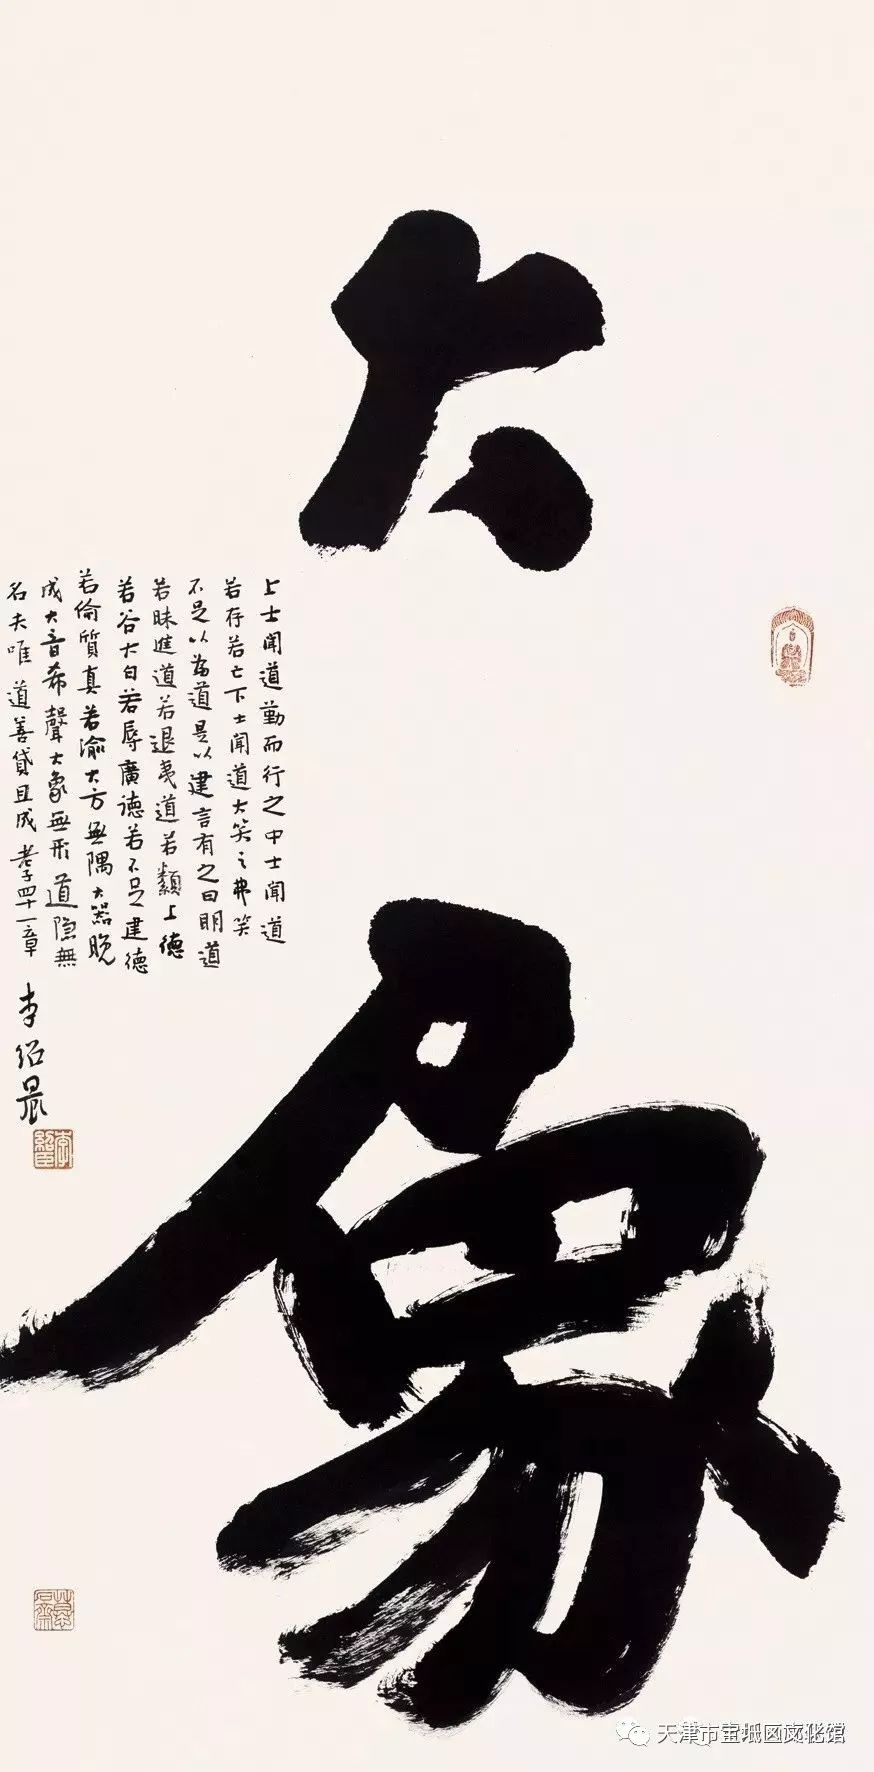 大
象
上士聞道勤而行之中士聞道
若存若亡下士聞道大笑之弗笑
不足以為道是以建言有之曰明道
若昧進道若退夷道若纇上德
若谷大白若辱廣德若不足建德
若偷質真若渝大方無隅大器晚
成大音希聲大象無形道隱無
名夫唯道善貸且成 老子四十一章
李紹晨
天津市宝坻区文化馆